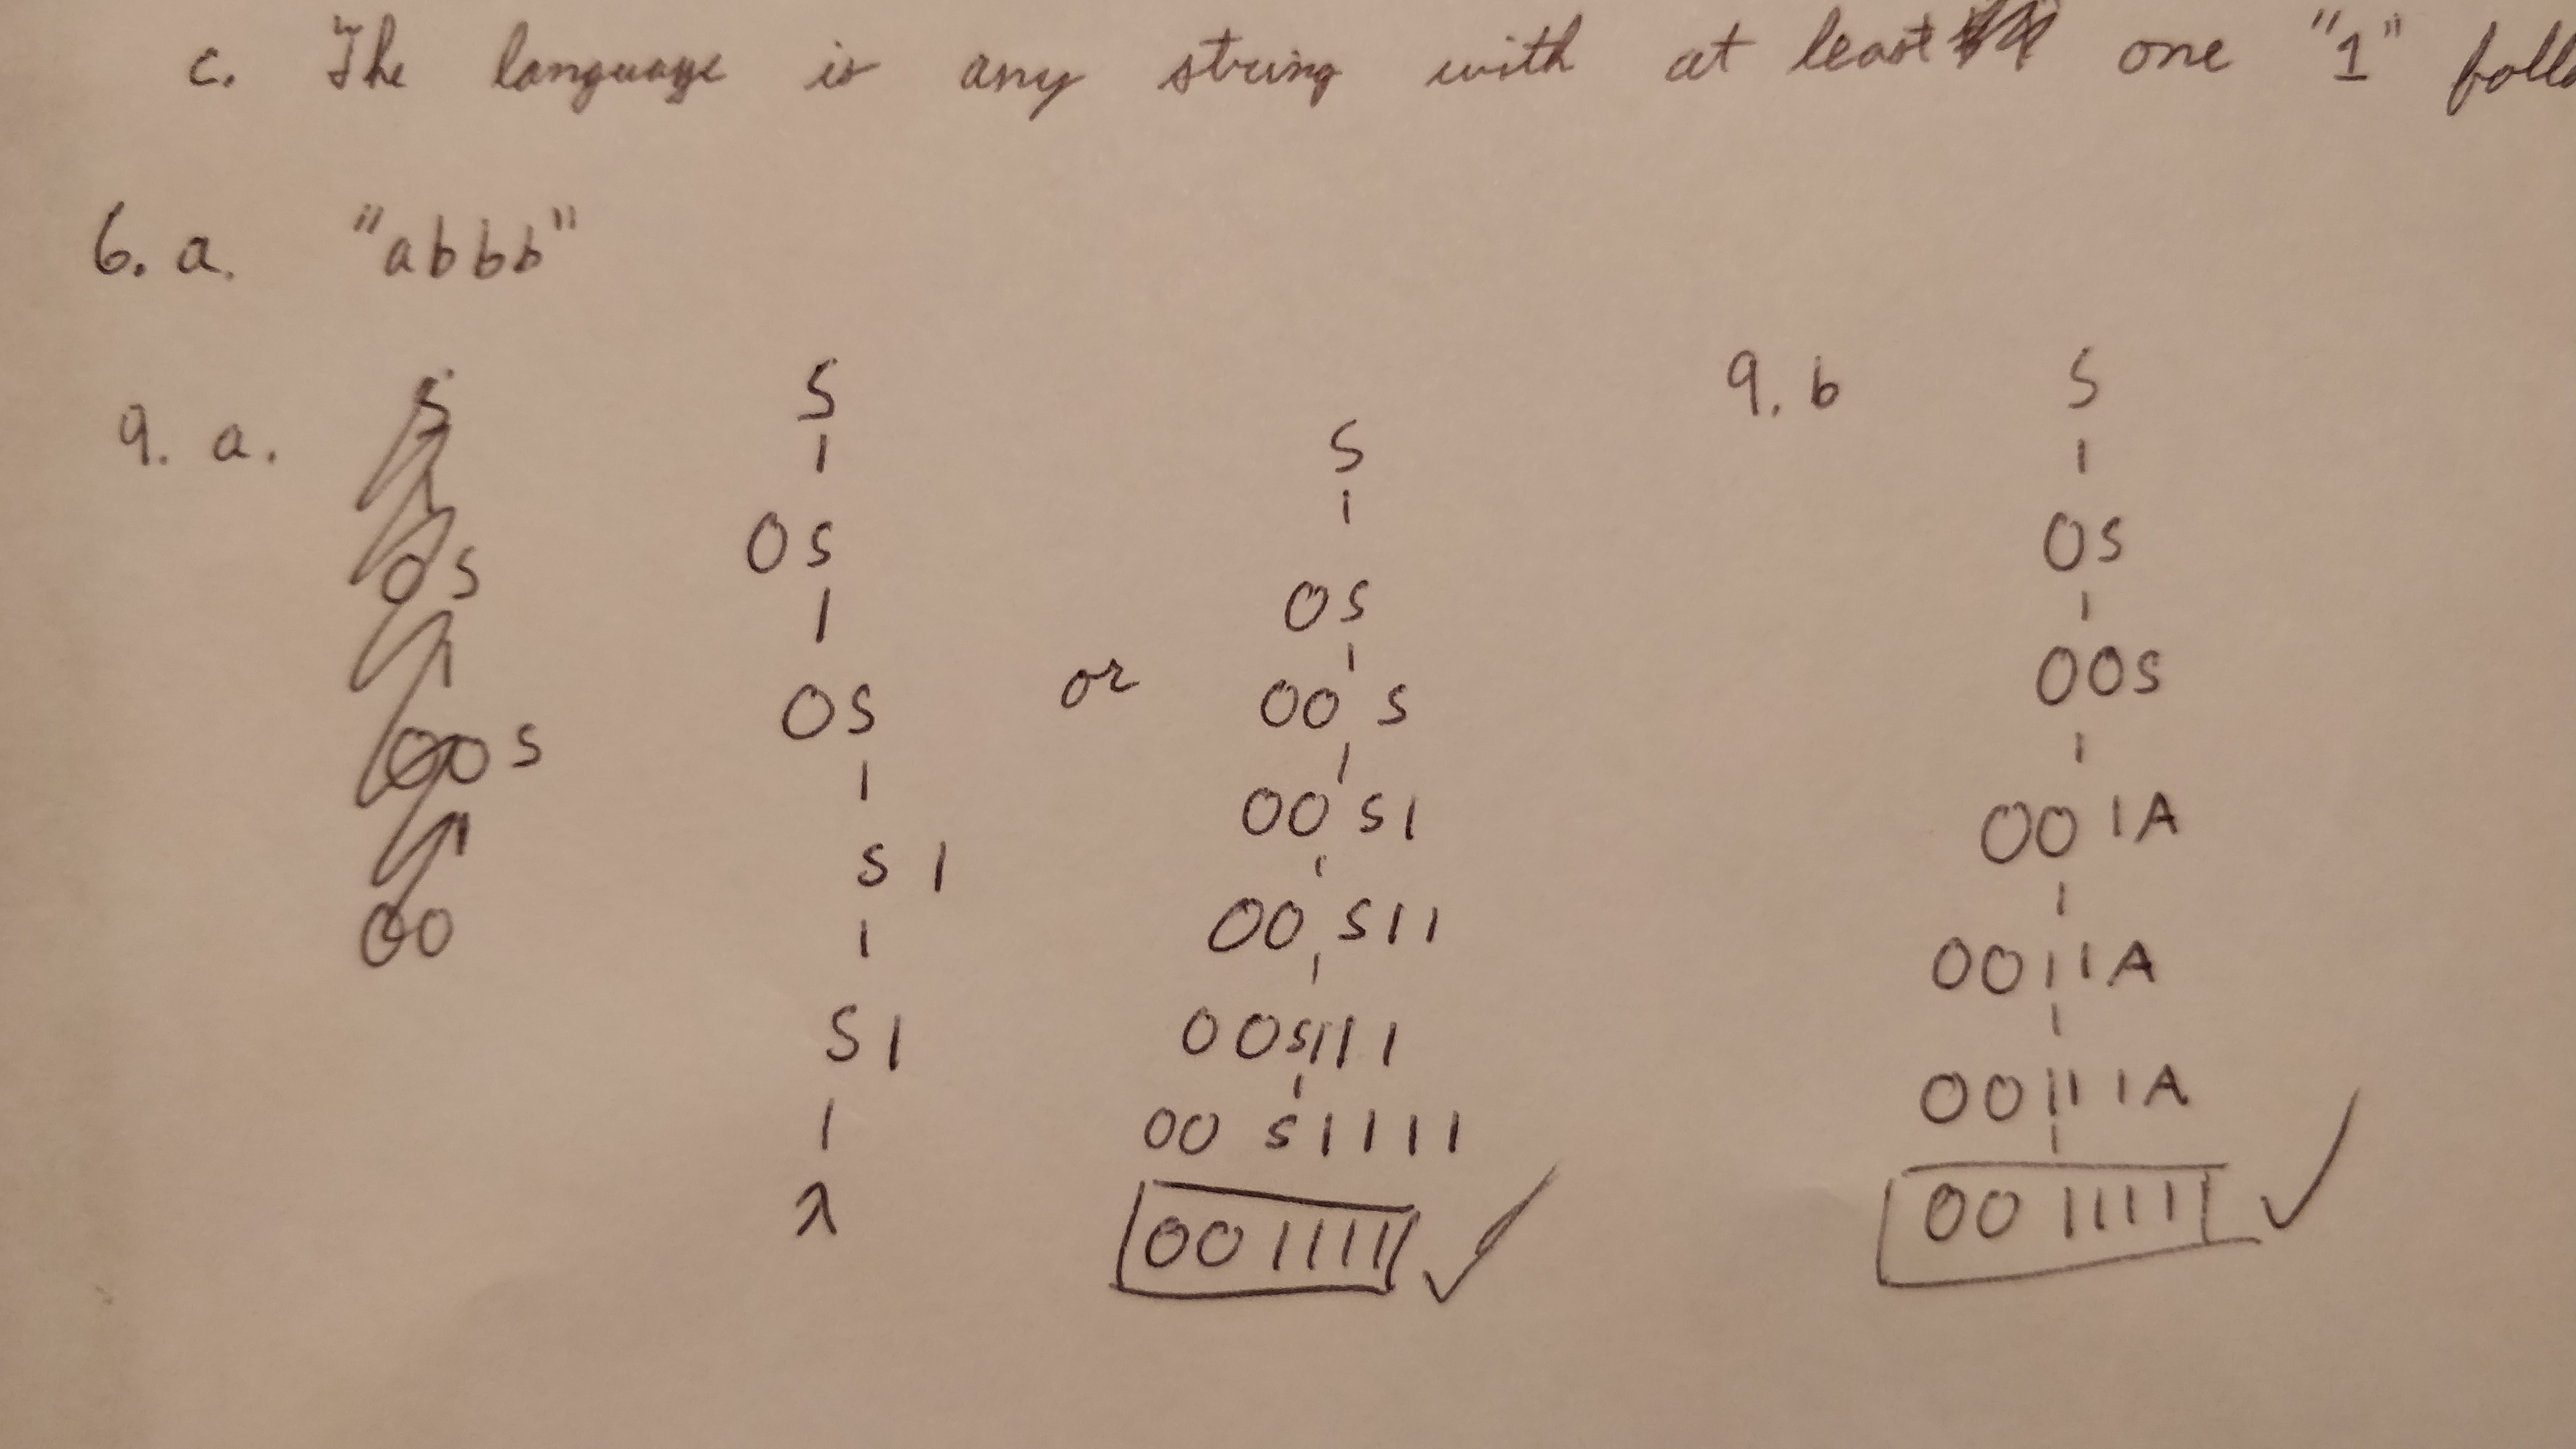 c. The language is any string with at least one "1"
6. a. "abbb"
9. a.
S
OS
OOS
OO
S
|
OS
|
OS
|
S1
|
S1
|
λ
or
S
|
OS
|
OOS
|
OOS1
|
OOS11
|
OOS111
|
OOS1111
001111 ✓
9. b
S
|
OS
|
OOS
|
001A
|
0011A
|
00111A
|
001111 ✓